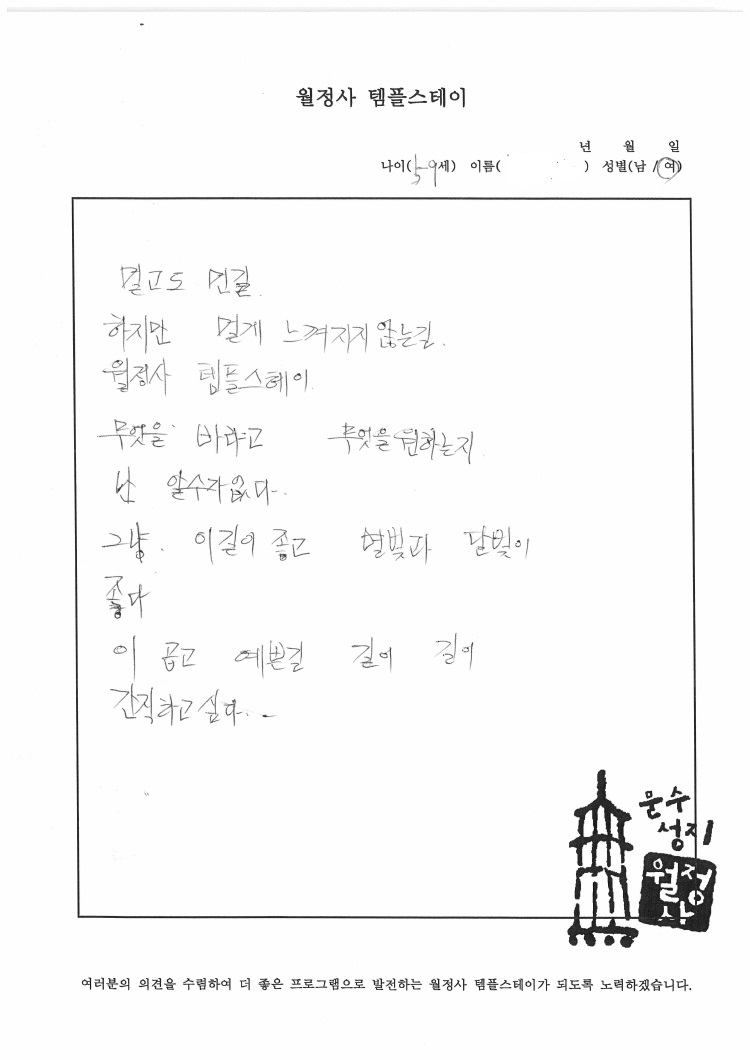 월정사 템플스테이
년 월 일
나이(59세) 이름( ) 성별(남 / 여)
멀고도 먼길.
하지만 멀게 느껴지지 않는길.
월정사 템플스테이.
무엇을 바라고 무엇을 원하는지
난 알수가없다.
그냥. 이길이 좋고 별빛과 달빛이
좋다
이 곱고 예쁜길 길이 길이
간직하고싶다..
문수
성지
월정
사
여러분의 의견을 수렴하여 더 좋은 프로그램으로 발전하는 월정사 템플스테이가 되도록 노력하겠습니다.